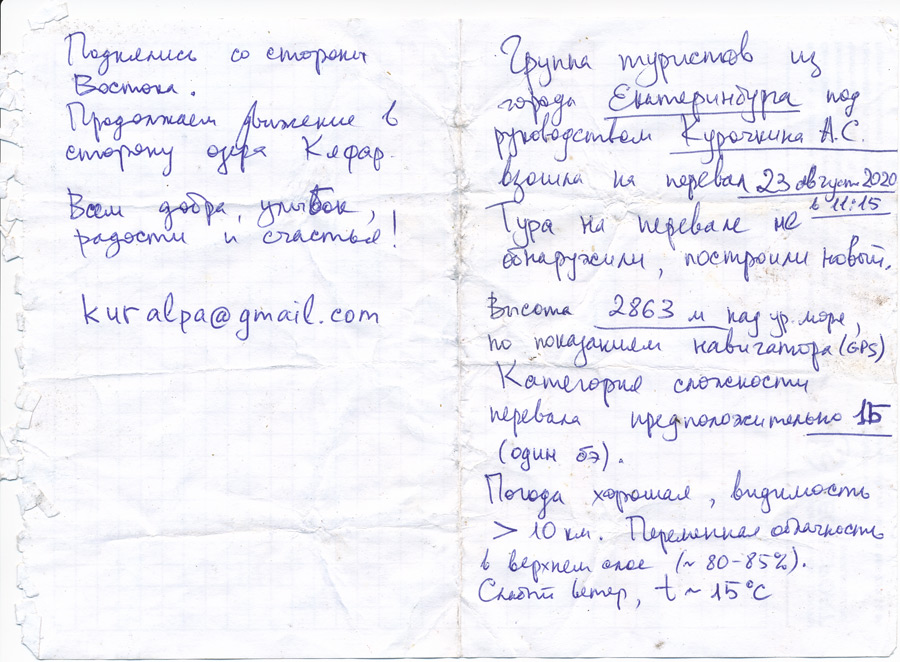 Поднялись со стороны
Востока.
Продолжаем движение в
сторону озера Кяфар.
Всем добра, улыбок,
радости и счастья!
kuralpa@gmail.com
Группа туристов из
города Екатеринбурга под
руководством Курочкина А.С.
взошла на перевал 23 август 2020
в 11:15
Тура на перевале не
обнаружили, построили новый.
Высота 2863 м над ур. море,
по показанием навигатора (GPS)
Категория сложности
перевала предположительно 1Б
(один бэ).
Погода хорошая, видимость
> 10 км. Переменная облачность
в верхнем слое (~ 80-85%).
Слабый ветер, t ~ 15°C